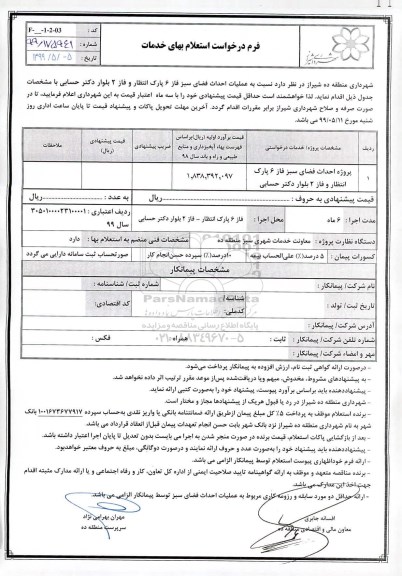 فرم درخواست استعلام بهای خدمات
کد : F-__-1-2-03
شماره : ۹۹/۱۷۵۹۴۱
تاریخ : ۱۳۹۹/۰۵/۰۵
شهرداری منطقه ده شیراز در نظر دارد نسبت به عملیات احداث فضای سبز فاز ۶ پارک انتظار و فاز ۲ بلوار دکتر حسابی با مشخصات
جدول ذیل اقدام نماید. لذا خواهشمند است حداقل قیمت پیشنهادی خود را با سه ماه اعتبار قیمت به این شهرداری اعلام فرمایید، تا در
صورت صرفه و صلاح شهرداری شیراز برابر مقررات اقدام گردد. آخرین مهلت تحویل پاکات و پیشنهاد قیمت تا پایان ساعت اداری روز
شنبه مورخ ۹۹/۰۵/۱۱ می باشد.
ردیف
مشخصات پروژه/ خدمات درخواستی
قیمت برآورد اولیه (ریال)براساس فهرست بهاء آبخیزداری و منابع طبیعی و راه و باند سال ۹۸
ضریب پیشنهادی
قیمت پیشنهادی (ریال)
ملاحظات
۱
پروژه احداث فضای سبز فاز ۶ پارک انتظار و فاز ۲ بلوار دکتر حسابی
۱,۸۳۸,۳۹۲,۰۹۷
قیمت پیشنهادی به حروف : ریال
به عدد : ریال
مدت اجرا : ۶ ماه
محل اجرا : فاز ۶ پارک انتظار - فاز ۲ بلوار دکتر حسابی
ردیف اعتباری : ۳۰۵۰۱۰۰۰۰۲۳۱۰۰۰۱ سال ۹۹
دستگاه نظارت پروژه : معاونت خدمات شهری شیراز منطقه ده
مشخصات فنی منضم به استعلام بها : دارد
کسورات پیمان : ۵ درصد(٪) علی الحساب بیمه
۱۰درصد(٪) سپرده حسن انجام کار
صورتحساب ثبت سامانه دارایی می گردد
مشخصات پیمانکار
نام شرکت/ پیمانکار :
شماره ثبت/ شناسنامه :
تاریخ ثبت/ تولد :
شناسه/ کدملی:
کد اقتصادی:
آدرس شرکت/ پیمانکار:
شماره تلفن شرکت/ پیمانکار : ثابت : همراه: فکس :
مهر و امضاء شرکت/ پیمانکار :
ParsNamadData
پایگاه اطلاع رسانی مناقصه و مزایده
۰۲۱-۸۸۳۴۹۶۷۰-۵
- درصورت ارائه گواهی ثبت نام، ارزش افزوده به پیمانکار پرداخت می‌شود.
- به پیشنهادهای مشروط، مخدوش، مبهم ویا دریافت‌شده پس‌از موعد مقرر ترتیب اثر داده نخواهد شد.
- پیشنهاددهنده باید براساس برآورد پیوست، پیشنهاد خود را بصورت کتبی ارائه نماید.
- شهرداری منطقه ده شیراز در رد یا قبول هریک از پیشنهادها مجاز و مختار است.
- برنده استعلام موظف به پرداخت ۵٪ کل مبلغ پیمان ازطریق ارائه ضمانتنامه بانکی یا واریز نقدی به‌حساب سپرده ۱۰۰۱۶۷۳۶۷۷۹۱۷ بانک
شهر به نام شهرداری منطقه ده شیراز نزد بانک شهر بابت حسن انجام تعهدات پیمان قبل‌از انعقاد قرارداد می باشد.
- بعد از بازگشایی پاکات استعلام، قیمت برنده در صورت منجر شدن به اجرا می بایست بدون تعدیل تا پایان اجرا اعتبار داشته باشد.
- پیشنهاددهنده باید پیشنهاد خود را بصورت عدد و حروف ارائه نمایند و درصورت دوگانگی، مبلغ به حروف معتبر خواهدبود.
- ارائه فرم خوداظهاری پیوست استعلام توسط پیمانکار الزامی می باشد.
- برنده مناقصه متعهد و موظف به ارائه گواهینامه تایید صلاحیت ایمنی از اداره کل تعاون، کار و رفاه اجتماعی و یا ارائه مدارک مثبته اقدام
جهت اخذ این مدارک می باشد.
- ارائه حداقل دو مورد سابقه و رزومه کاری مربوط به عملیات احداث فضای سبز توسط پیمانکار الزامی می باشد.
افسانه جابری
معاون مالی و اقتصادی منطقه ده
مهران بهرامی نژاد
سرپرست منطقه ده